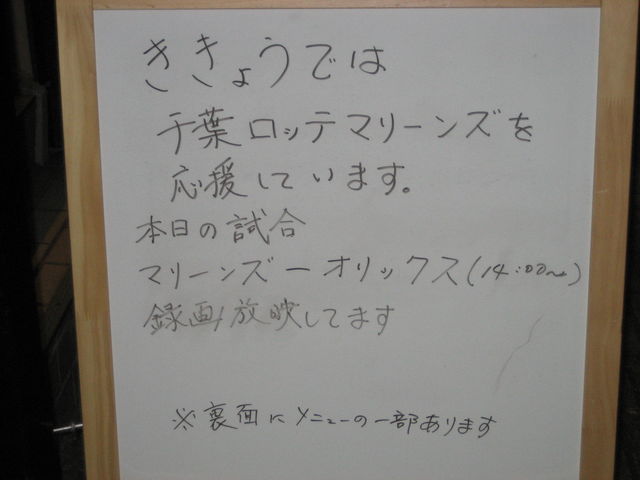 ききょうでは
千葉ロッテマリーンズを
応援しています。
本日の試合
マリーンズーオリックス(14:00〜)
録画放映してます
※裏面にメニューの一部あります